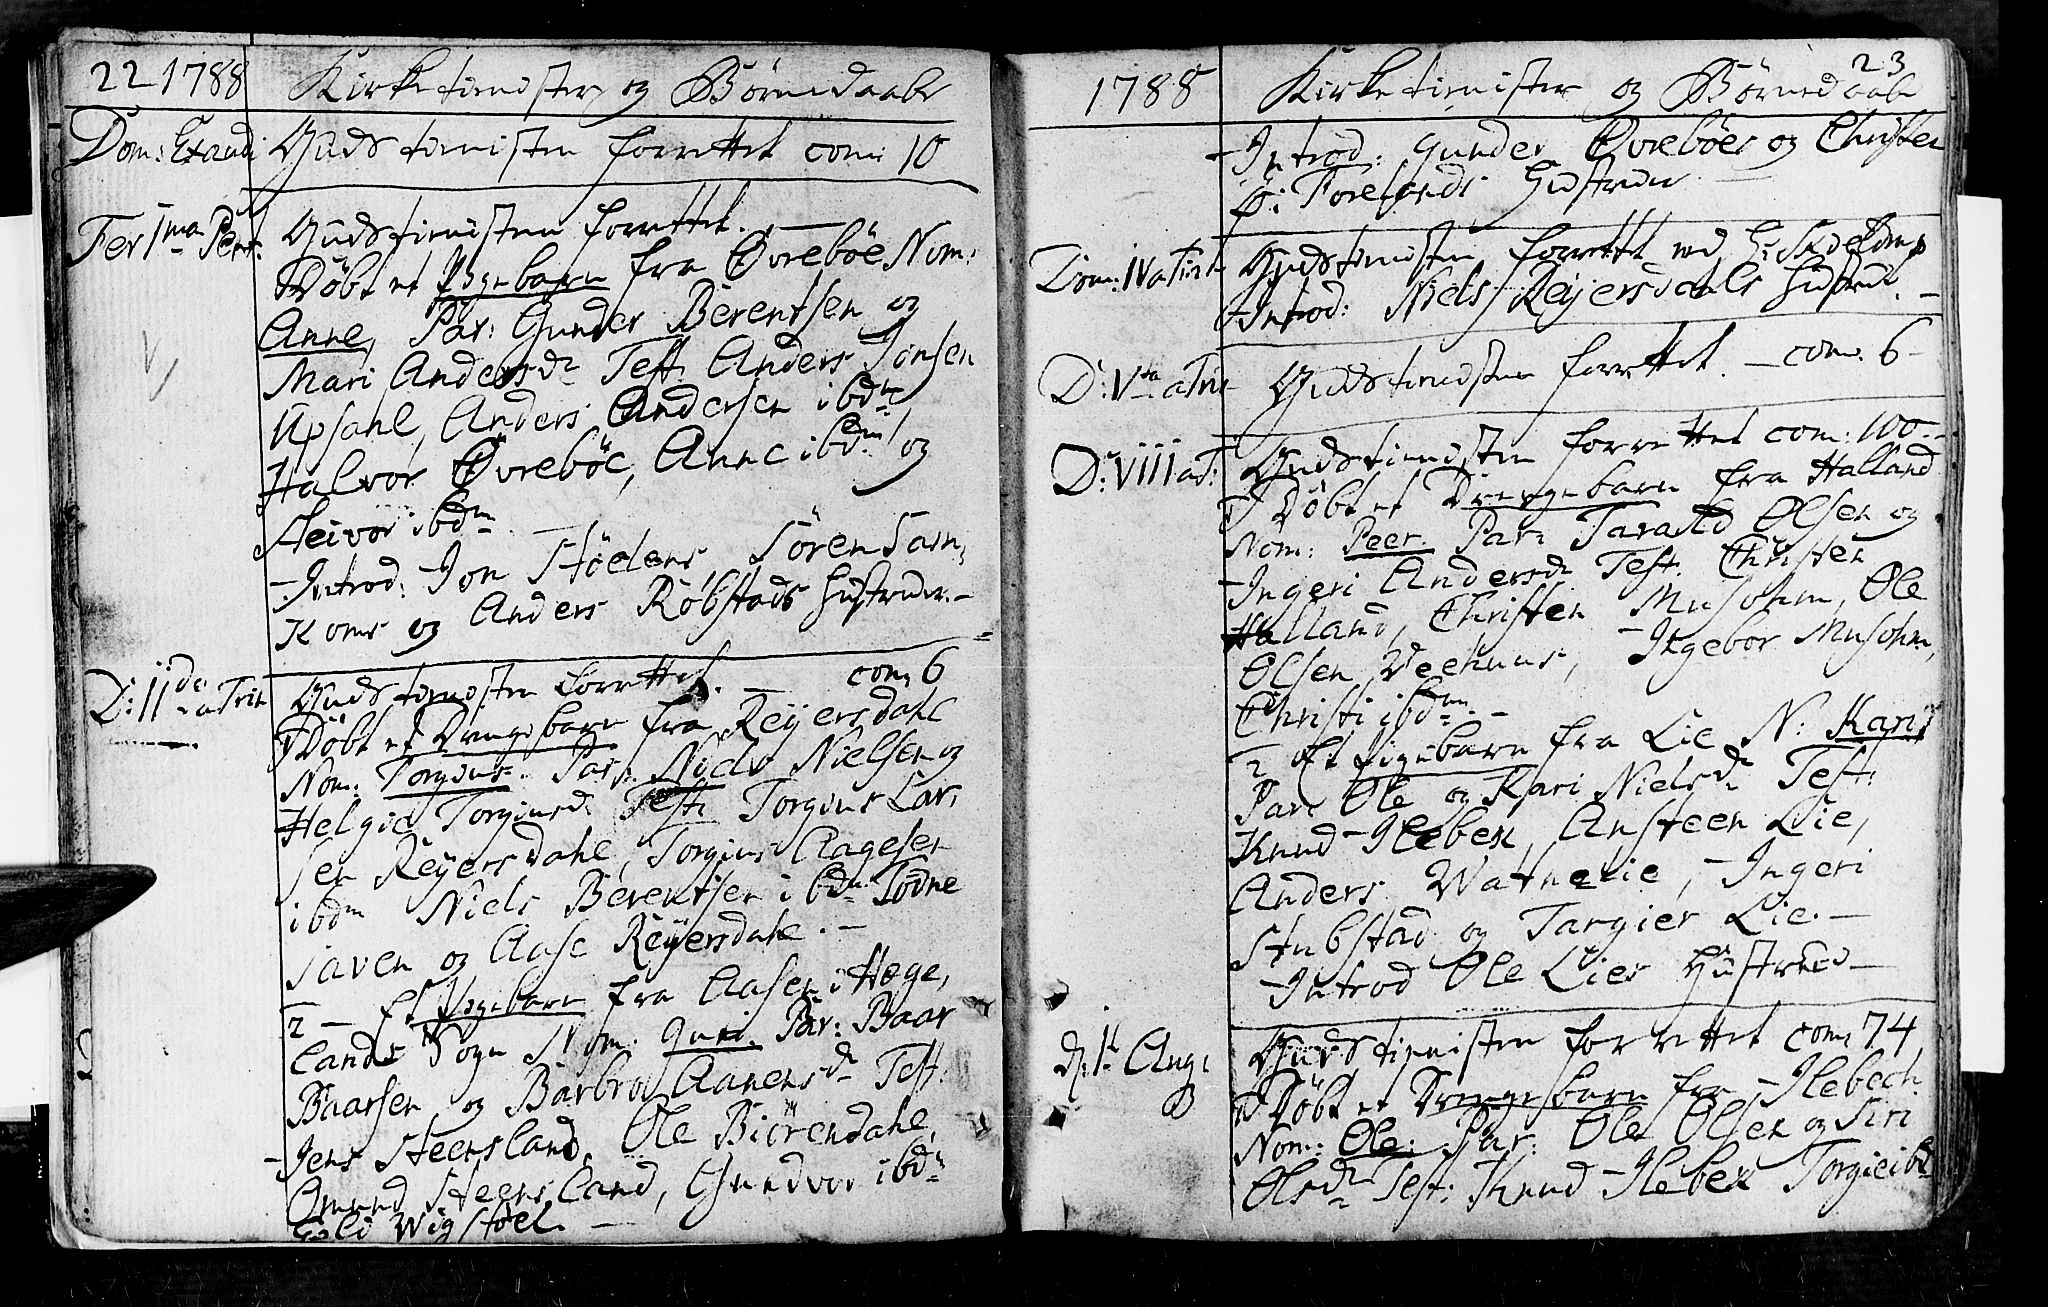 22 1788 Kirketienister og Børnedaabe
Dom: Exaudi Gudstienisten forrettet com: 10
Fer 1ma Pent: Gudstienisten forrettet. —
Døbt et Pigebarn fra Øvrebøe Nom:
Anne, Par: Gunder Berentsen og
Mari Andersd: Test: Anders Jonsen
Upsahl, Anders Andersen ibdm,
Halvor Øvrebøe, Anne ibdm og
Steivor ibdm
Introd: Jon Støelens Søren Sam,
Koms og Anders Røbstads Hustruer. —
D: IIda a Trin Gudstienisten forrettet. — com: 6
Døbt et Drengebarn fra Reyersdahl
Nom: Torgius. Par: Niels Nielsen og
Helgie Torgiusd: Test: Torgius Lar,
sen Reyersdahl, Torgius Aagesen
ibdm Niels Berentsen ibdm Tødne
saven og Aase Reyersdahl. —
2 — Et Pigebarn fra Aasen i Høge,
lands Sogn Nom: Guri. Par: Baar
Baarsen og Barbro Aanensd Test:
Jens Steensland, Ole Biørendahl,
Omund Steensland, Gundvor ibdm
Eli Wigstøel. —
23
1788 Kirketienister og Børnedaabe
Introd: Gunder Øvrebøes og Christen
Torelands Hustruer
Dom: IV a Trin Gudstienisten forrettet ved Hr
Introd: Niels Reyersdals Hustrue. —
D: Vta a Trin Gudstienisten forrettet. — com: 6 —
D: VIII a T: Gudstienisten forrettet com: 100 —
Døbt et Drengebarn fra Halland
Nom: Peer. Par: Tarald Olsen og
Ingeri Andersd Test: Christen
Halland, Christen Musohm, Ole
Olsen Veehuus, Ingebor Musohm,
Christi ibdm. —
2 Et Pigebarn fra Lie N: Kari
Par: Ole og Kari Nielsd Test:
Knud Ilebek, Ansteen Lie,
Anders Watnelie, Ingeri
Stubstad og Targier Lie. —
Introd Ole Lies Hustrue —
D: 1t Aug: Gudstienisten forrettet com: 74
Døbt et Drengebarn fra Ilebech
Nom: Ole: Par: Ole Olsen og Siri
Olsd Test: Knud Ilebek Torgie ibd